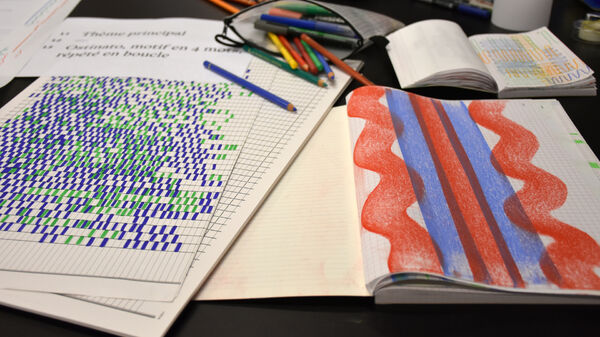 A1 Thème principal
A2 Ostinato, motif en 4 mots,
répété en boucle